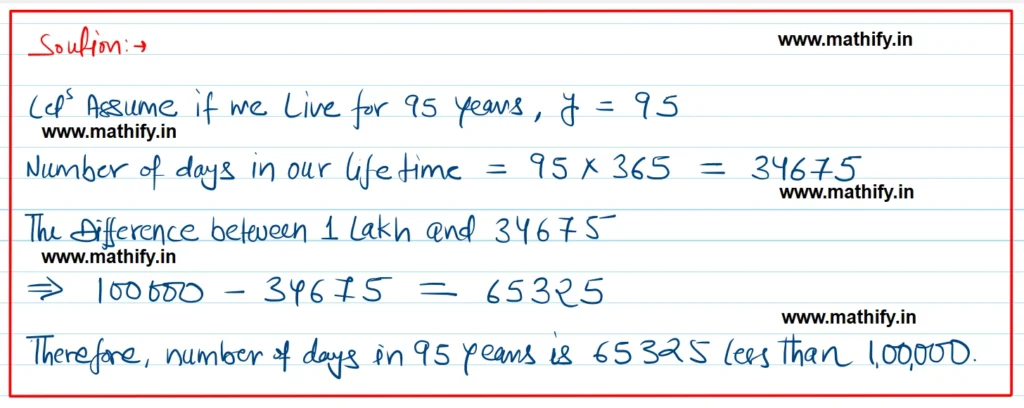 Soution:→
www.mathify.in
Let's Assume if we Live for 95 years, y = 95
www.mathify.in
Number of days in our life time = 95 × 365 = 34675
www.mathify.in
The Difference between 1 Lakh and 34675
www.mathify.in
⇒ 100000 - 34675 = 65325
www.mathify.in
Therefore, number of days in 95 years is 65325 less than 1,00,000.